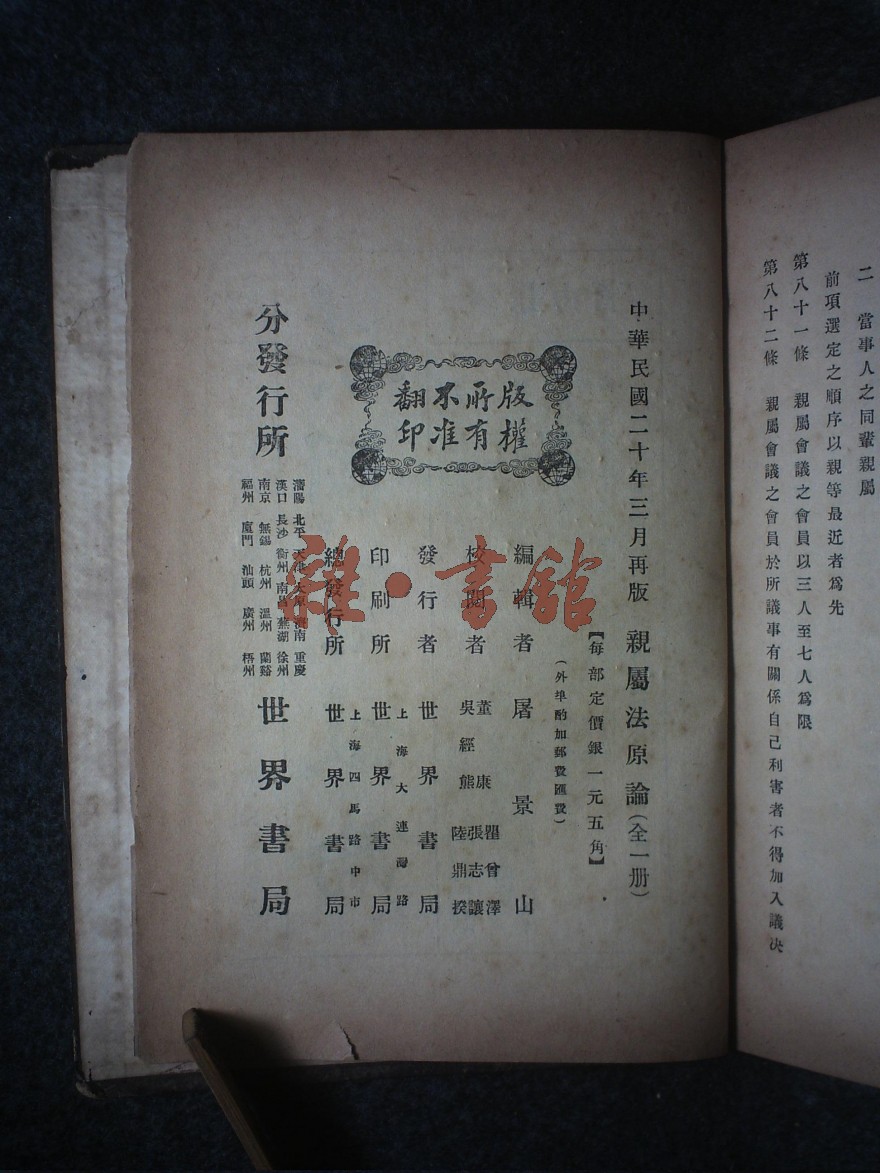 二　當事人之同輩親屬
前項選定之順序以親等最近者爲先
第八十一條　親屬會議之會員以三人至七人爲限
第八十二條　親屬會議之會員於所議事有關係自己利害者不得加入議决
中華民國二十年三月再版
親屬法原論（全一册）
【每部定價銀一元五角】
（外埠酌加郵費匯費）
版權
所有
不准
翻印
編輯者　屠景山
校閱者　董康　吳經熊　瞿曾澤　張志讓　陸鼎揆
發行者　世界書局
上海大連灣路
印刷所　世界書局
上海四馬路中市
總發行所　世界書局
分發行所
瀋陽　北平　天津　太原　濟南　重慶
漢口　長沙　衡州　南昌　蕪湖　徐州
南京　無錫　杭州　溫州　蘭谿
福州　廈門　汕頭　廣州　梧州
世界書局
雜·書舘